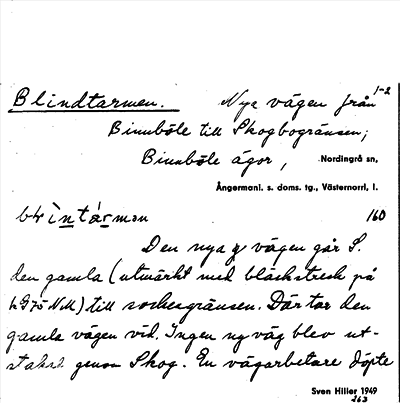 1-2
Blindtarmen. Nya vägen från
Binnböle till Skogbogränsen;
Binnböle ägor, Nordingrå sn,
Ångermanl. s. doms. tg., Västernorrl. l.
160
Den nya vägen går S.
den gamla (utmärkt med bläckstreck på
) till sockengränsen. Där tar den
gamla vägen vid. Ingen ny väg blev ut-
stakad genom Skog. En vägarbetare döpte
Sven Hiller 1949
263